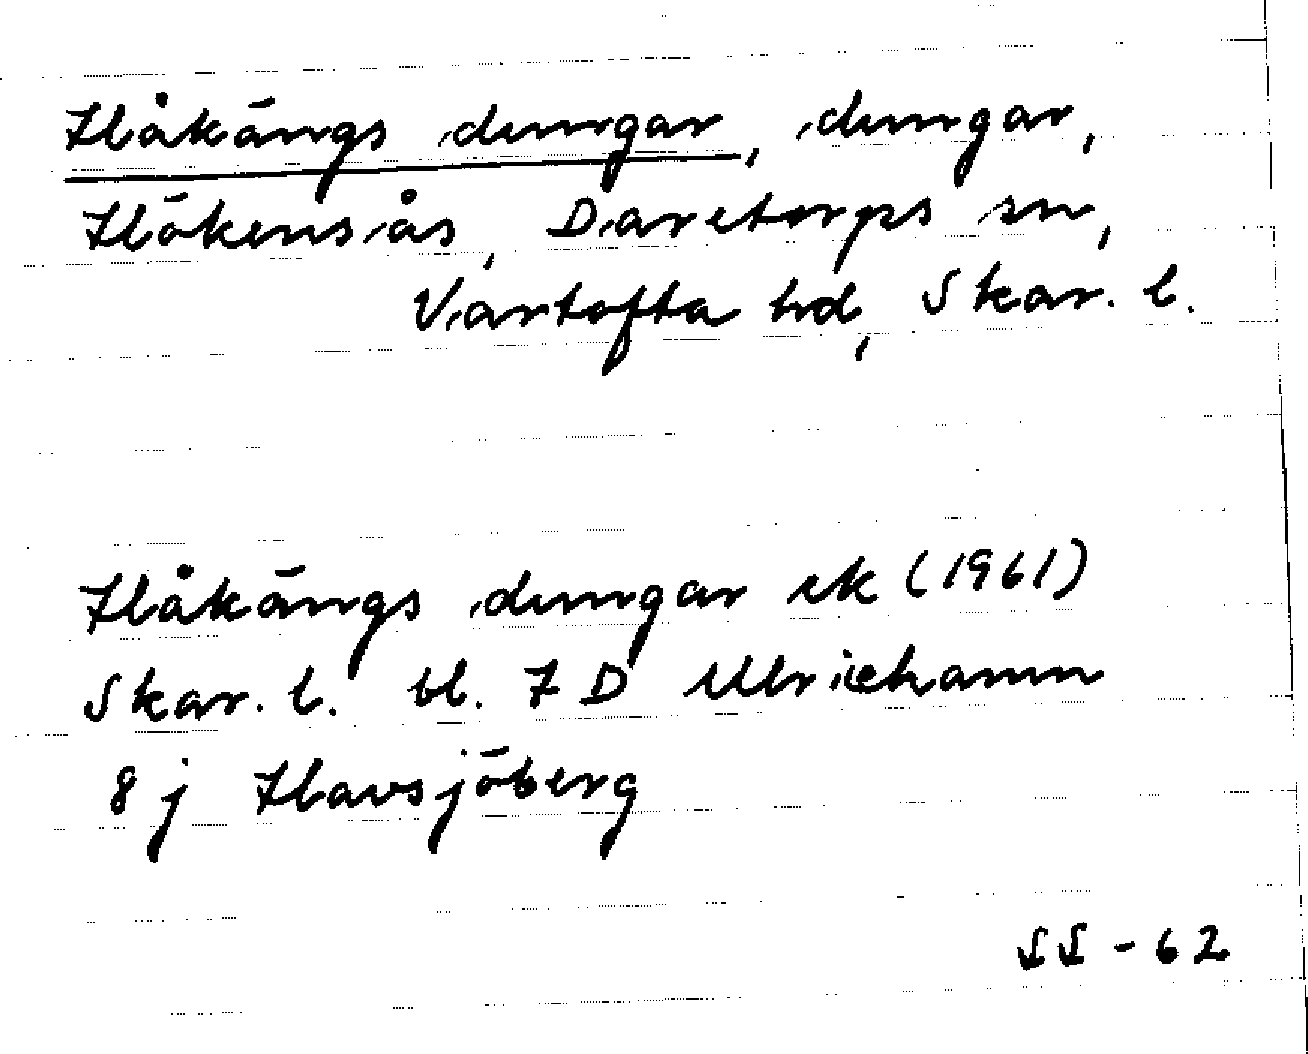 Håkängs dungar, dungar,
Hökensås, Daretorps sn,
Vartofta hd, Skar. l.
Håkängs dungar ek (1961)
Skar. l. bl. 7 D Ulricehamn
8 j Havsjöberg
SS - 62